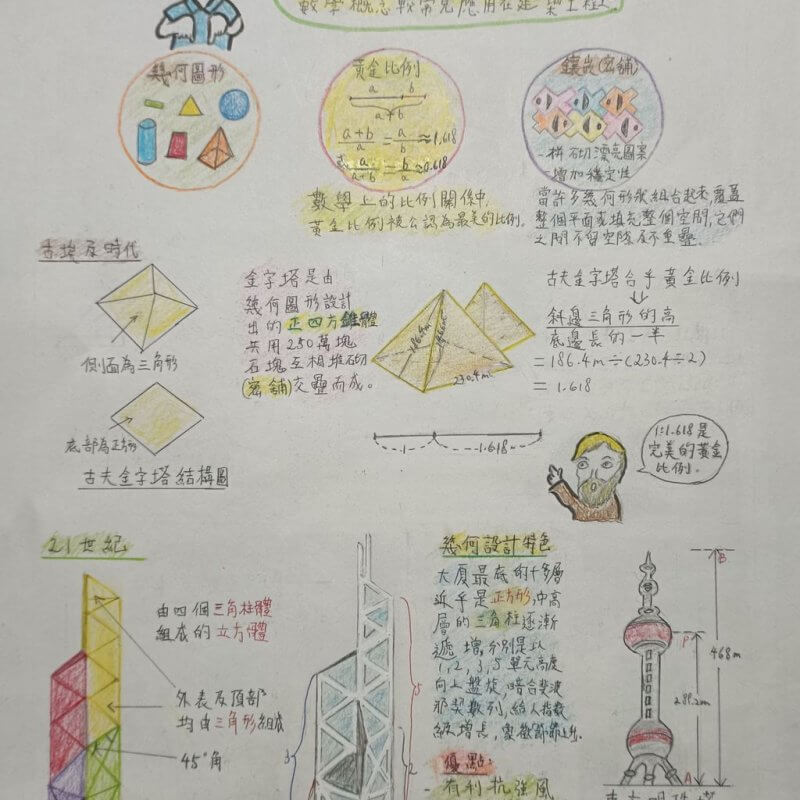 數學概念較常見應用在建築工程上
幾何圖形
黃金比例
a b
a+b
a+b/a = a/b ≈ 1.618
a/a+b = b/a ≈ 0.618
數學上的比例關係中,
黃金比例被公認為最美的比例。
鑲嵌(密鋪)
-拼砌漂亮圖案
-增加穩定性
當許多幾何形狀組合起來,覆蓋
整個平面或填充整個空間,它們
之間不留空隙及不重疊.
古埃及時代
側面為三角形
底部為正方形
古夫金字塔結構圖
金字塔是由
幾何圖形設計
出的正四方錐體
共用250萬塊
石塊互相堆砌
(密鋪)交疊而成。
186.4m
230.4m
古夫金字塔合乎黃金比例
斜邊三角形的高
底邊長的一半
=186.4m÷(230.4÷2)
=1.618
1 1.618
1:1.618是
完美的黃金
比例。
21世紀
由四個三角柱體
組底的立方體
外表及頂部
均由三角形組底
45°角
5
3
2
幾何設計特色
大廈最底的十多層
近乎是正方形,中高
層的三角柱逐漸
遞增,分別是以
1,2,3,5單元高度
向上盤旋,暗合斐波
那契數列,給人指數
級增長,象徵節節上升.
優點:
-有利抗強風
B
P
A
468m
289.2m